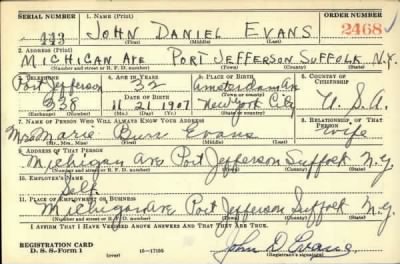 SERIAL NUMBER 1. NAME (Print) ORDER NUMBER
443 JOHN DANIEL EVANS 2468
(First) (Middle) (Last)
2. ADDRESS (Print)
MICHIGAN AVE PORT JEFFERSON SUFFOLK N.Y.
(Number and street or R. F. D. number) (Town) (County) (State)
3. TELEPHONE 4. AGE IN YEARS 5. PLACE OF BIRTH 6. COUNTRY OF CITIZENSHIP
Port Jefferson 32 Amsterdam Av
DATE OF BIRTH (Town or county)
338 11 21 1907 New York City U.S.A.
(Exchange) (Number) (Mo.) (Day) (Yr.) (State or country)
7. NAME OF PERSON WHO WILL ALWAYS KNOW YOUR ADDRESS 8. RELATIONSHIP OF THAT PERSON
Mrs Marie Burr Evans wife
(Mr., Mrs., Miss) (First) (Middle) (Last)
9. ADDRESS OF THAT PERSON
Michigan Ave Port Jefferson Suffolk N.Y.
(Number and street or R. F. D. number) (Town) (County) (State)
10. EMPLOYER'S NAME
Self
11. PLACE OF EMPLOYMENT OR BUSINESS
Michigan Ave Port Jefferson Suffolk N.Y.
(Number and street or R. F. D. number) (Town) (County) (State)
I AFFIRM THAT I HAVE VERIFIED ABOVE ANSWERS AND THAT THEY ARE TRUE.
REGISTRATION CARD
D. S. S. Form 1 (over) 16—17105 John D. Evans
(Registrant's signature)